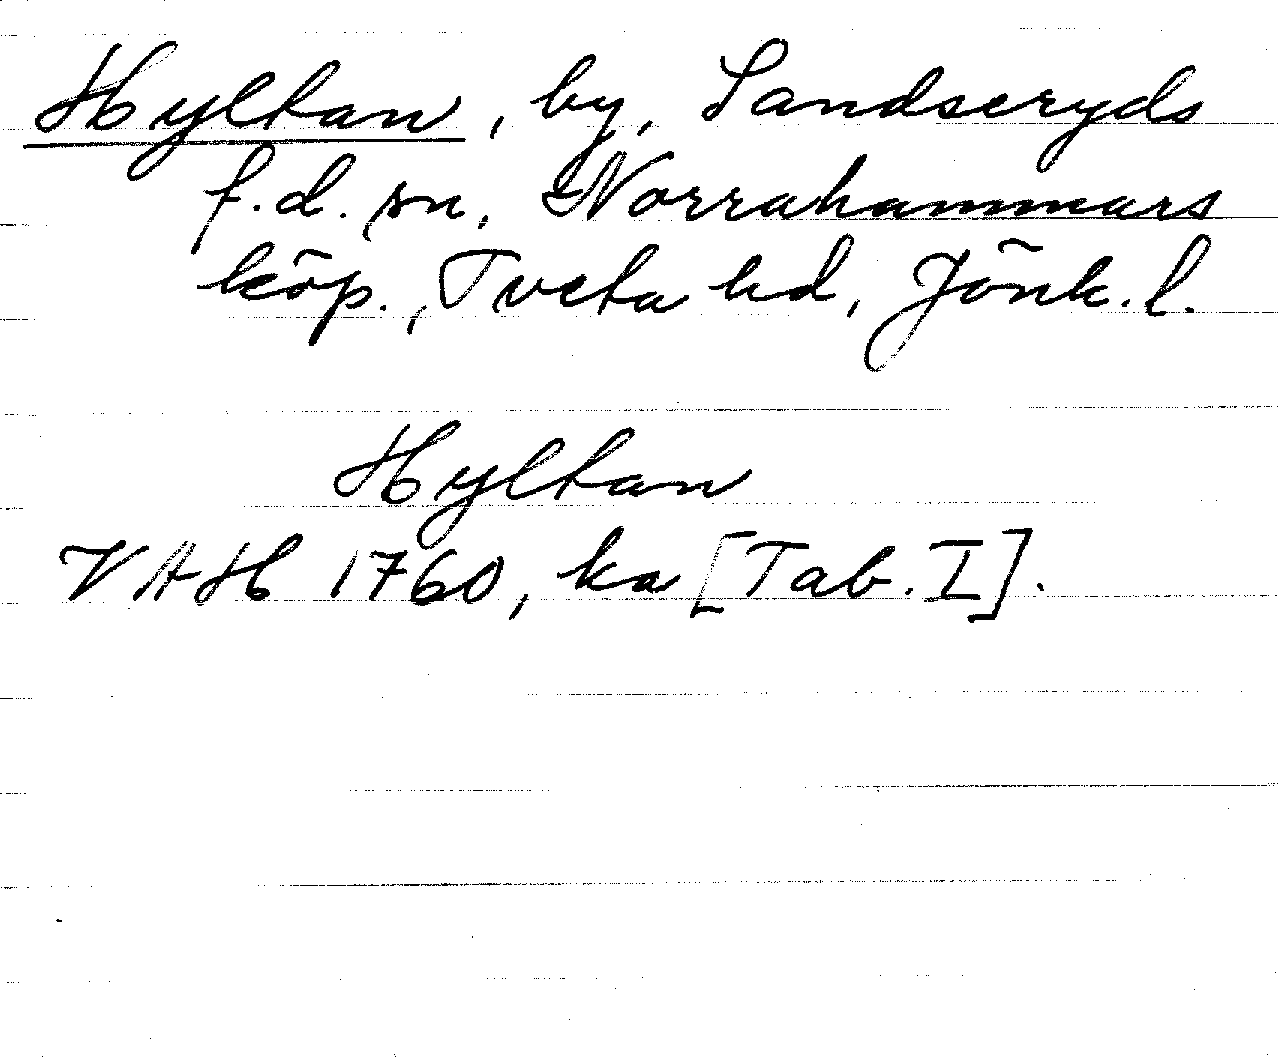 Hyltan, by, Sandseryds
f.d. sn, Norrahammars
köp., Tveta hd, Jönk. l.
Hyltan
VAH 1760, ka [Tab. I].